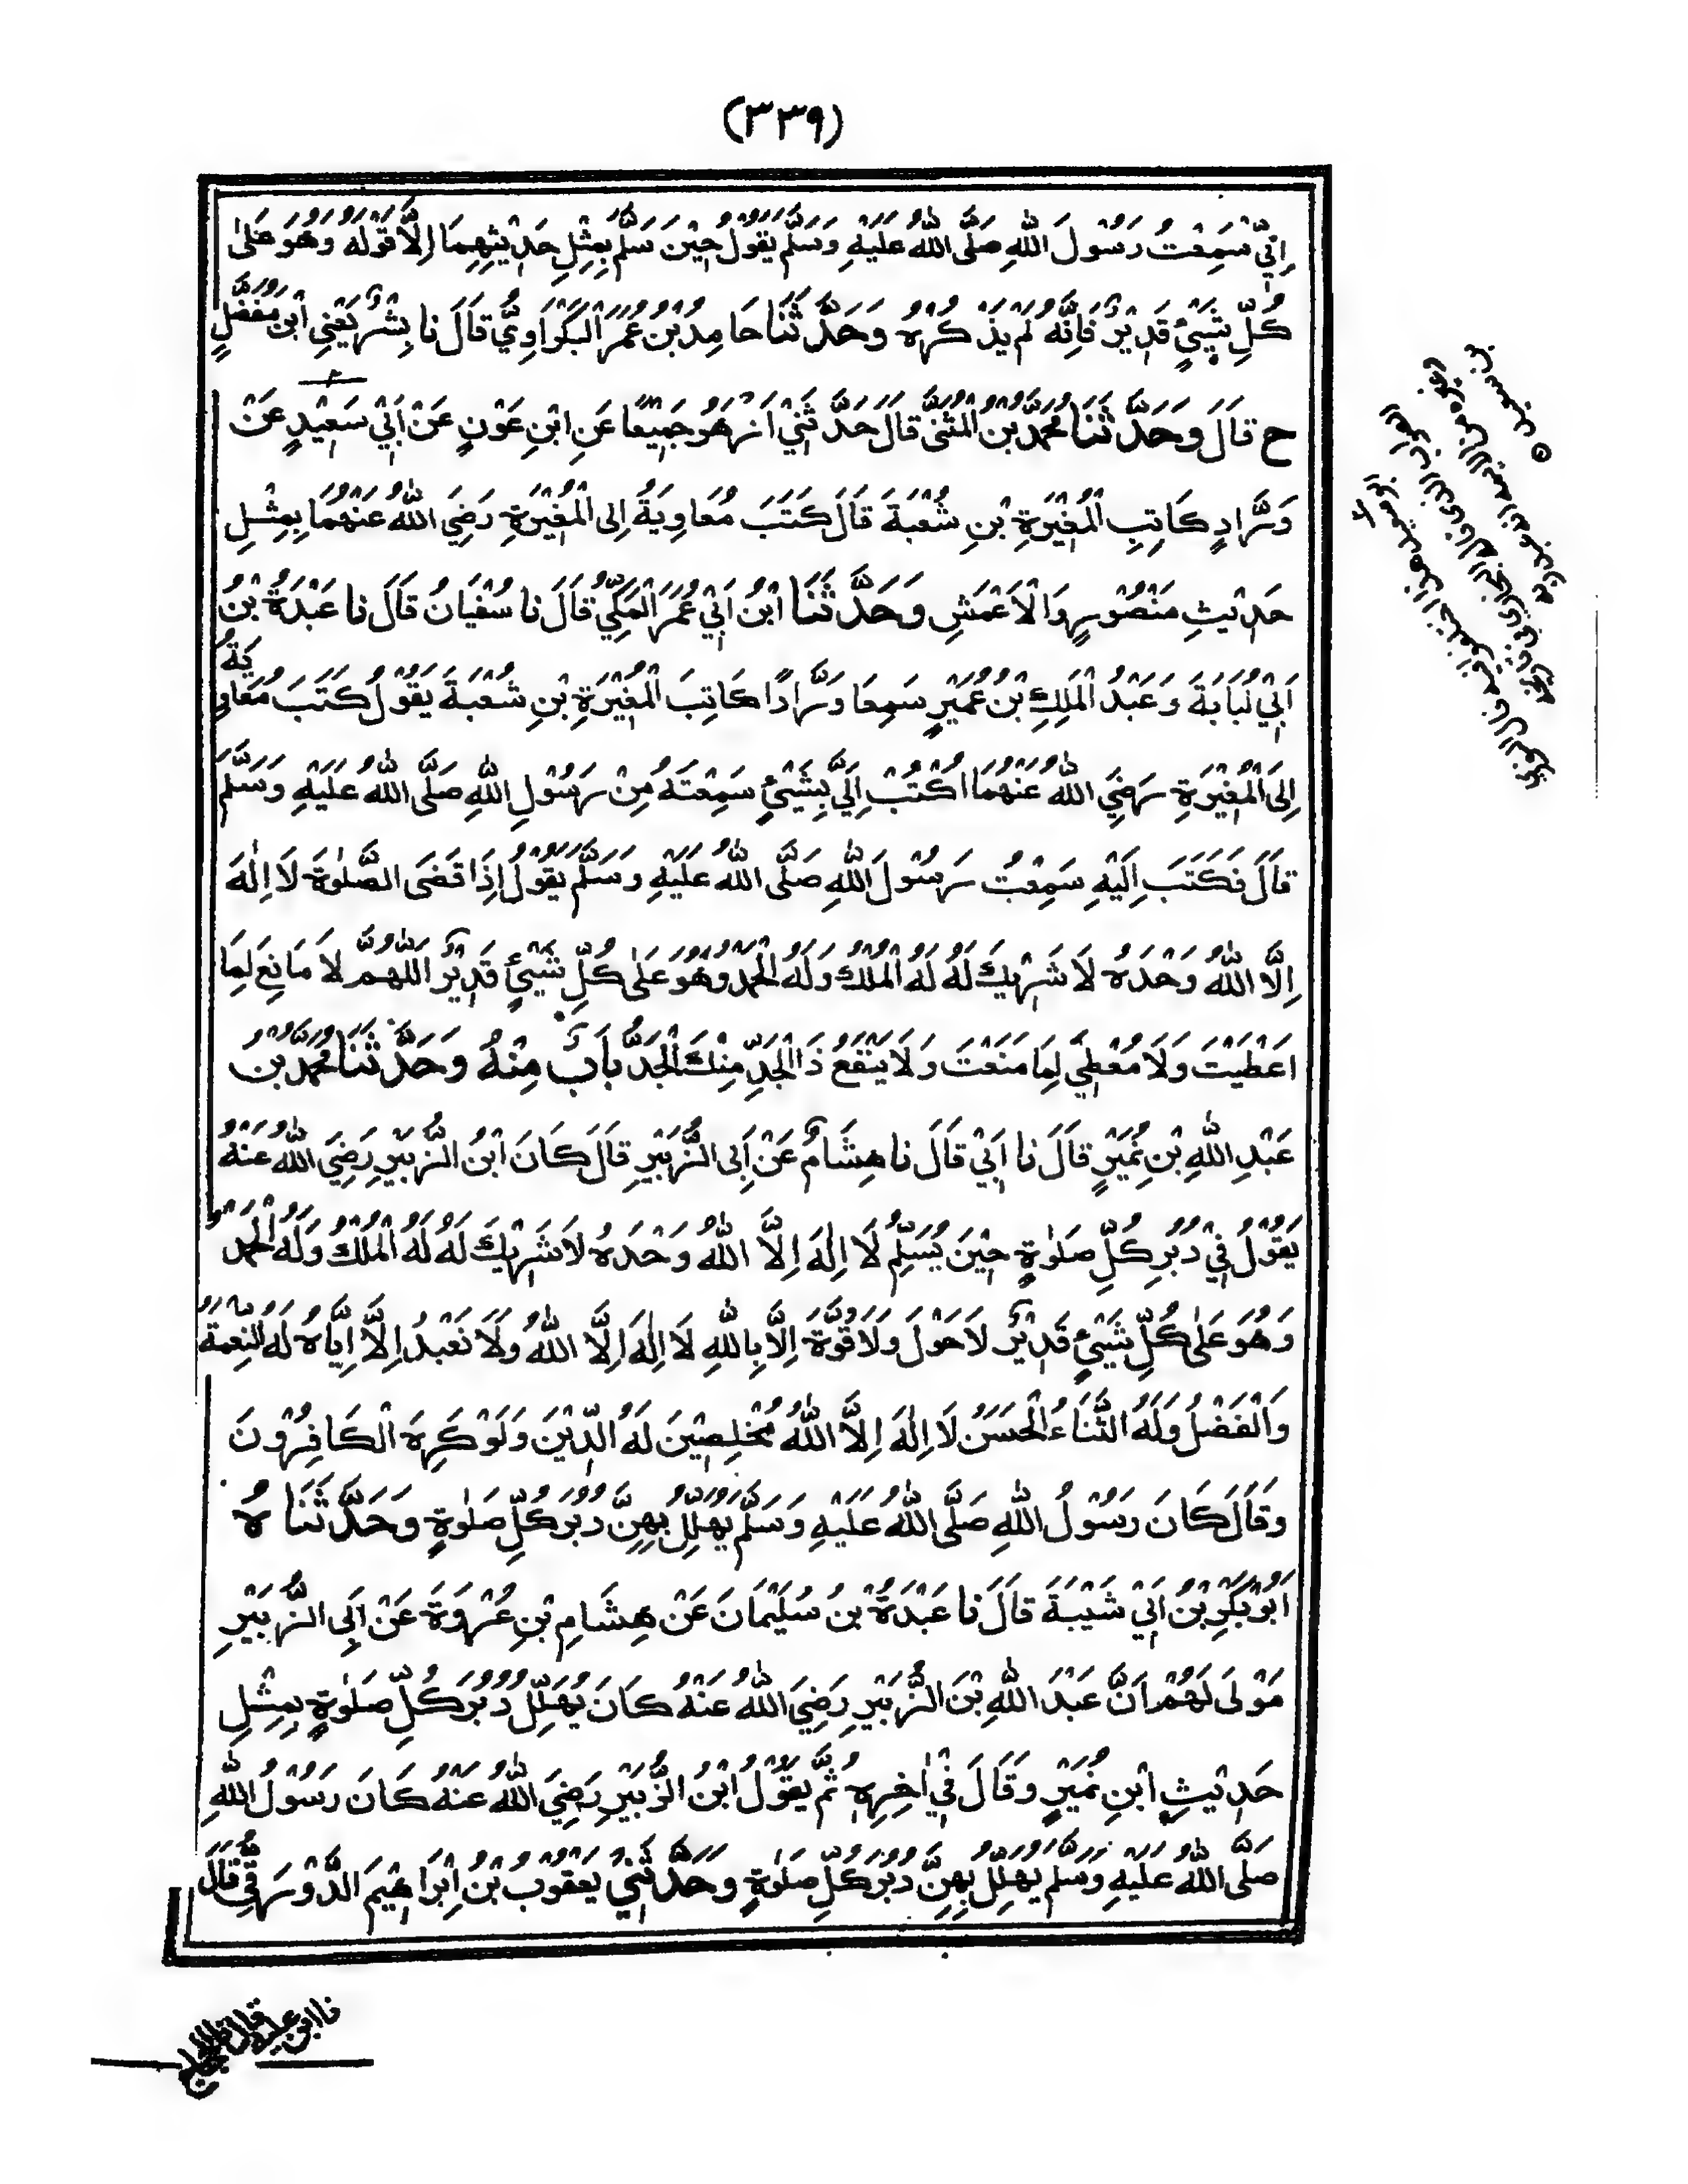 (٣٣٩)
اِنِّيْ سَمِعْتُ رَسُوْلَ اللّٰهِ صَلَّى اللّٰهُ عَلَيْهِ وَسَلَّمَ يَقُوْلُ حِيْنَ سَلَّمَ بِمِثْلِ حَدِيْثِهِمَا اِلَّا قَوْلَهٗ وَهُوَ عَلٰى
كُلِّ شَيْئٍ قَدِيْرٌ فَاِنَّهٗ لَمْ يَذْكُرْهُ وَحَدَّثَنَا حَامِدُ بْنُ عُمَرَ الْبَكْرَاوِيُّ قَالَ نا بِشْرٌ يَعْنِي ابْنَ مُفَضَّلٍ
ح قَالَ وَحَدَّثَنَا مُحَمَّدُ بْنُ الْمُثَنّٰى قَالَ حَدَّثَنِيْ اَزْهَرُ جَمِيْعًا عَنِ ابْنِ عَوْنٍ عَنْ اَبِيْ سَعِيْدٍ عَنْ
وَرَّادٍ كَاتِبِ الْمُغِيْرَةِ بْنِ شُعْبَةَ قَالَ كَتَبَ مُعَاوِيَةُ اِلَى الْمُغِيْرَةِ رَضِيَ اللّٰهُ عَنْهُمَا بِمِثْلِ
حَدِيْثِ مَنْصُوْرٍ وَالْاَعْمَشِ وَحَدَّثَنَا ابْنُ اَبِيْ عُمَرَ الْمَكِّيُّ قَالَ نا سُفْيَانُ قَالَ نا عَبْدَةُ بْنُ
اَبِيْ لُبَابَةَ وَعَبْدُ الْمَلِكِ بْنُ عُمَيْرٍ سَمِعَا وَرَّادًا كَاتِبَ الْمُغِيْرَةِ بْنِ شُعْبَةَ يَقُوْلُ كَتَبَ مُعَاوِيَةُ
اِلَى الْمُغِيْرَةِ رَضِيَ اللّٰهُ عَنْهُمَا اُكْتُبْ اِلَيَّ بِشَيْئٍ سَمِعْتَهٗ مِنْ رَسُوْلِ اللّٰهِ صَلَّى اللّٰهُ عَلَيْهِ وَسَلَّمَ
قَالَ فَكَتَبَ اِلَيْهِ سَمِعْتُ رَسُوْلَ اللّٰهِ صَلَّى اللّٰهُ عَلَيْهِ وَسَلَّمَ يَقُوْلُ اِذَا قَضَى الصَّلٰوةَ لَا اِلٰهَ
اِلَّا اللّٰهُ وَحْدَهٗ لَا شَرِيْكَ لَهٗ لَهُ الْمُلْكُ وَلَهُ الْحَمْدُ وَهُوَ عَلٰى كُلِّ شَيْئٍ قَدِيْرٌ اَللّٰهُمَّ لَا مَانِعَ لِمَا
اَعْطَيْتَ وَلَا مُعْطِيَ لِمَا مَنَعْتَ وَلَا يَنْفَعُ ذَا الْجَدِّ مِنْكَ الْجَدُّ بَابٌ مِنْهُ وَحَدَّثَنَا مُحَمَّدُ بْنُ
عَبْدِ اللّٰهِ بْنِ نُمَيْرٍ قَالَ نا اَبِيْ قَالَ نا هِشَامٌ عَنْ اَبِي الزُّبَيْرِ قَالَ كَانَ ابْنُ الزُّبَيْرِ رَضِيَ اللّٰهُ عَنْهُ
يَقُوْلُ فِيْ دُبُرِ كُلِّ صَلٰوةٍ حِيْنَ يُسَلِّمُ لَا اِلٰهَ اِلَّا اللّٰهُ وَحْدَهٗ لَا شَرِيْكَ لَهٗ لَهُ الْمُلْكُ وَلَهُ الْحَمْدُ
وَهُوَ عَلٰى كُلِّ شَيْئٍ قَدِيْرٌ لَا حَوْلَ وَلَا قُوَّةَ اِلَّا بِاللّٰهِ لَا اِلٰهَ اِلَّا اللّٰهُ وَلَا نَعْبُدُ اِلَّا اِيَّاهُ لَهُ النِّعْمَةُ
وَالْفَضْلُ وَلَهُ الثَّنَاءُ الْحَسَنُ لَا اِلٰهَ اِلَّا اللّٰهُ مُخْلِصِيْنَ لَهُ الدِّيْنَ وَلَوْ كَرِهَ الْكَافِرُوْنَ
وَقَالَ كَانَ رَسُوْلُ اللّٰهِ صَلَّى اللّٰهُ عَلَيْهِ وَسَلَّمَ يُهَلِّلُ بِهِنَّ دُبُرَ كُلِّ صَلٰوةٍ وَحَدَّثَنَاهُ
اَبُوْ بَكْرِ بْنُ اَبِيْ شَيْبَةَ قَالَ نا عَبْدَةُ بْنُ سُلَيْمَانَ عَنْ هِشَامِ بْنِ عُرْوَةَ عَنْ اَبِي الزُّبَيْرِ
مَوْلًى لَهُمْ اَنَّ عَبْدَ اللّٰهِ بْنَ الزُّبَيْرِ رَضِيَ اللّٰهُ عَنْهُ كَانَ يُهَلِّلُ دُبُرَ كُلِّ صَلٰوةٍ بِمِثْلِ
حَدِيْثِ ابْنِ نُمَيْرٍ وَقَالَ فِيْ اٰخِرِهٖ ثُمَّ يَقُوْلُ ابْنُ الزُّبَيْرِ رَضِيَ اللّٰهُ عَنْهُ كَانَ رَسُوْلُ اللّٰهِ
صَلَّى اللّٰهُ عَلَيْهِ وَسَلَّمَ يُهَلِّلُ بِهِنَّ دُبُرَ كُلِّ صَلٰوةٍ وَحَدَّثَنِيْ يَعْقُوْبُ بْنُ اِبْرَاهِيْمَ الدَّوْرَقِيُّ قَالَ
نا ابن علية قال